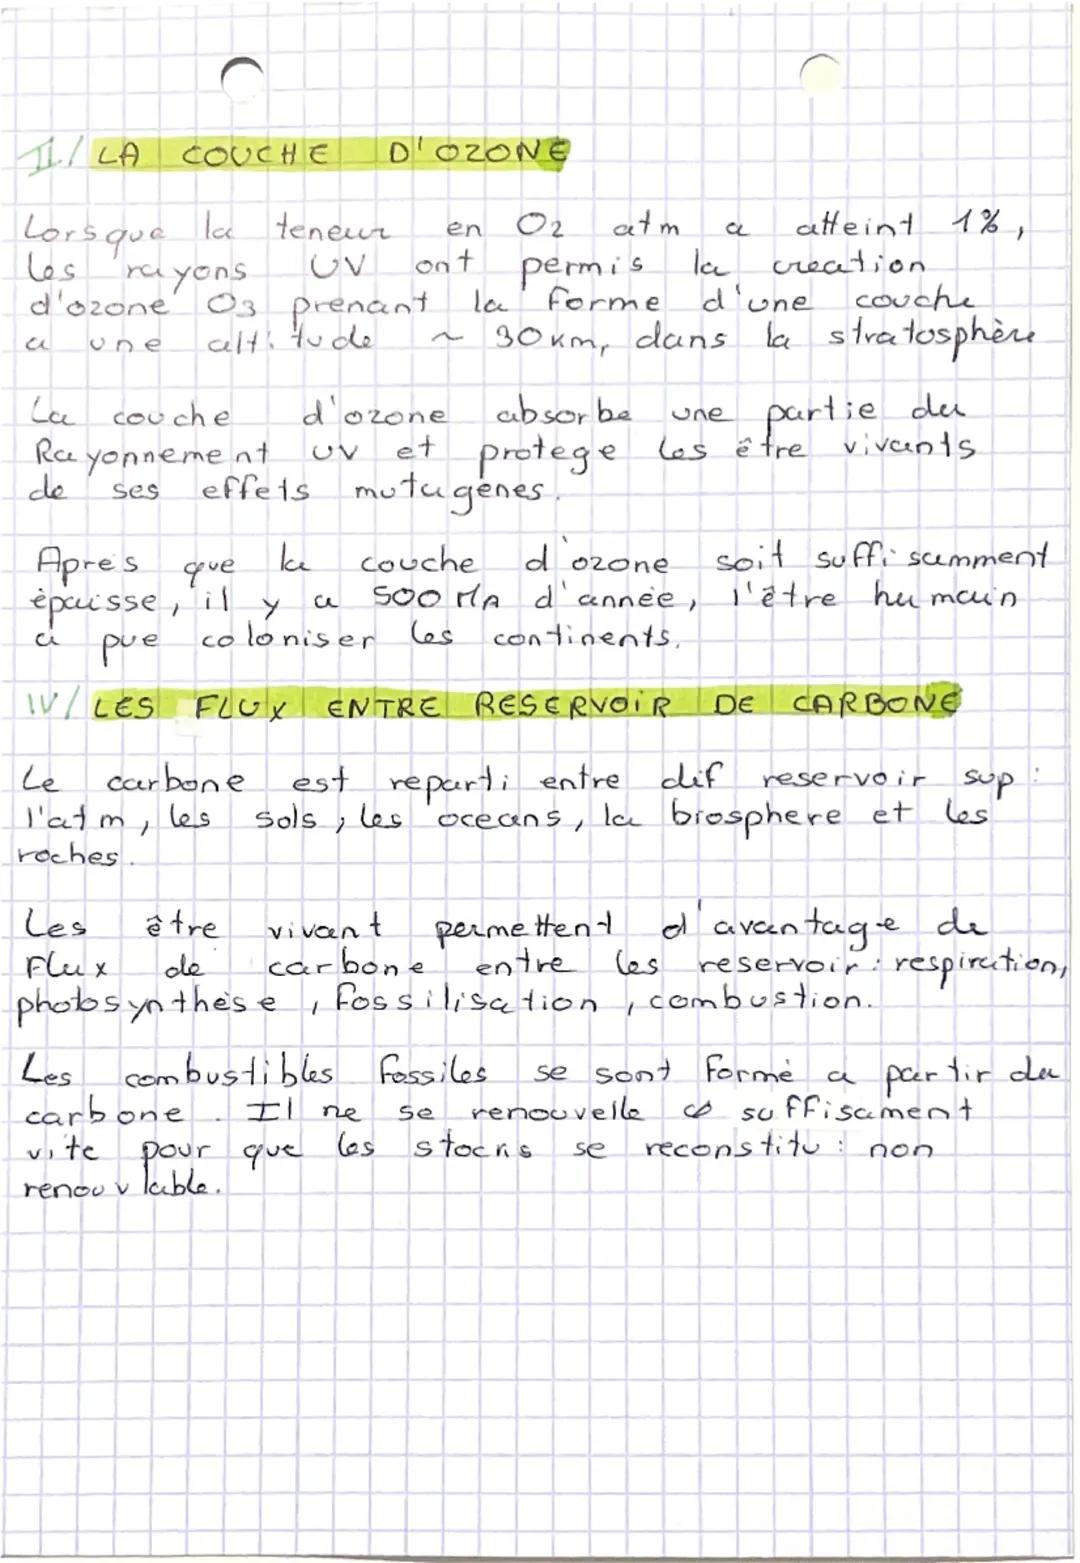 II/ LA COUCHE D'OZONE
Lorsque la teneur en O2 atm a atteint 1%,
les rayons UV ont permis la creation
d'ozone O3 prenant la forme d'une couche
a une altitude ~ 30 km, dans la stratosphère
La couche d'ozone absorbe une partie du
Rayonnement UV et protege les être vivants
de ses effets mutagènes.
Apres que la couche d'ozone soit suffisamment
épaisse, il y a 500 MA d'année, l'être humain
a pue coloniser les continents.
IV/ LES FLUX ENTRE RESERVOIR DE CARBONE
Le carbone est reparti entre dif reservoir sup :
l'atm, les sols, les oceans, la biosphere et les
roches.
Les être vivant permettent d'avantage de
Flux de carbone entre les reservoir : respiration,
photosynthèse, fossilisation, combustion.
Les combustibles fossiles se sont formé a partir du
carbone. Il ne se renouvelle suffisament
vite pour que les stocks se reconstitu : non
renouvlable.